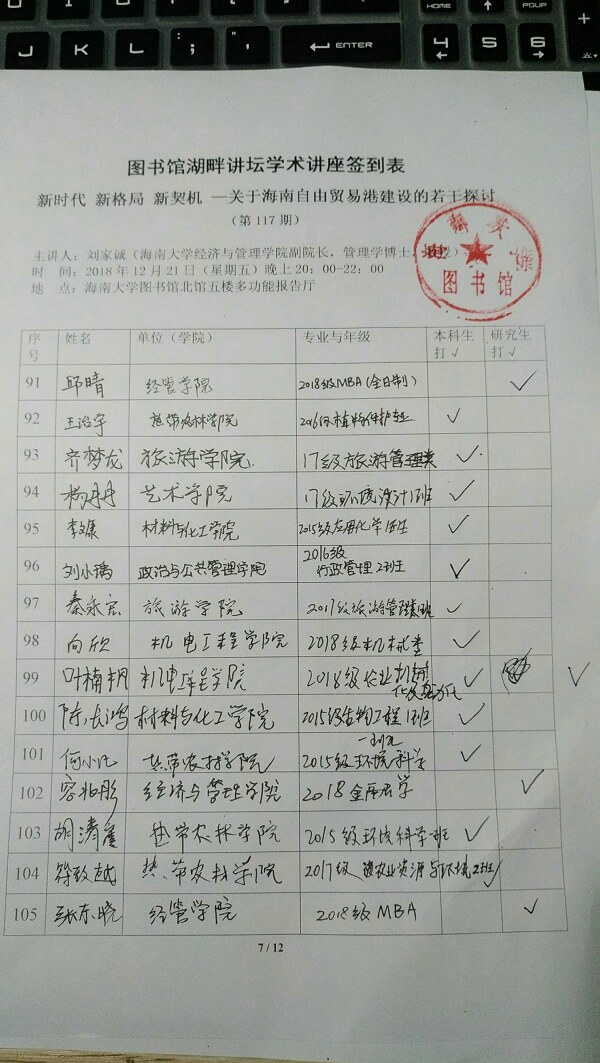 HOME
PGUP
J K L ; : " ' ENTER 4 5 6 +
图书馆湖畔讲坛学术讲座签到表
新时代 新格局 新契机 —关于海南自由贸易港建设的若干探讨
（第 117 期）
主讲人：刘家诚（海南大学经济与管理学院副院长，管理学博士
时 间：2018 年 12 月 21 日（星期五）晚上 20：00-22：00
地 点：海南大学图书馆北馆五楼多功能报告厅
海南大学
图书馆
序号 姓名 单位（学院） 专业与年级 本科生打√ 研究生打√
91 邱晴 经管学院 2018级MBA(全日制) √
92 王治宇 热带农林学院 2016级植物保护专业 √
93 齐梦龙 旅游学院 17级旅游管理类 √
94 杨丹丹 艺术学院 17级环境设计1班 √
95 李文康 材料与化工学院 2015级应用化学 √
96 刘小满 政治与公共管理学院 2016级行政管理2班 √
97 秦永宏 旅游学院 2017级旅游管理 √
98 向欣 机电工程学院 2018级机械类 √
99 叶楠 机电工程学院 2018级农业机械 √ √
100 陈长鸿 材料与化工学院 2015级生物工程1班 √
101 何小 热带农林学院 2015级环境科学 √
102 容 彤 经济与管理学院 2018金 学 √
103 胡清 热带农林学院 2015级环境科学班 √
104 符致越 热带农林学院 2017级农业资源与环境2班 √
105 张东晓 经管学院 2018级MBA √
7 / 12